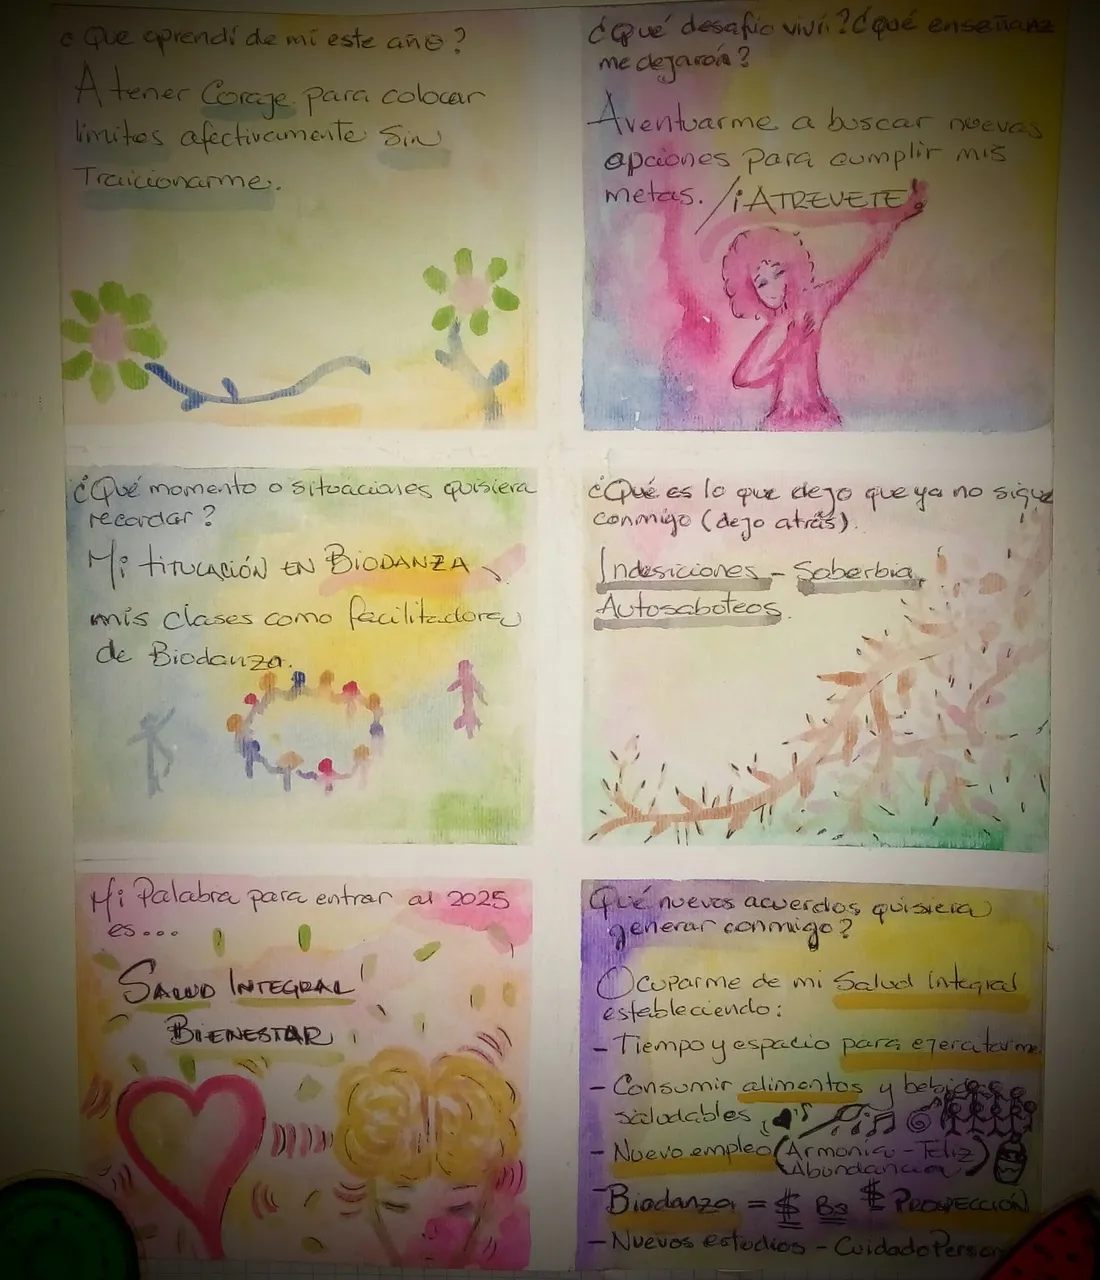 ¿Que aprendí de mí este año?
A tener Coraje para colocar
límites afectivamente Sin
Traicionarme.
¿Qué desafío viví? ¿qué enseñanz
me dejarón?
Aventuarme a buscar nuevas
opciones para cumplir mis
metas. / ¡ATREVETE!
¿Qué momento o situaciones quisiera
recordar?
Mi TITULACIÓN EN BIODANZA,
mis clases como facilitadora
de Biodanza.
¿Qué es lo que dejo que ya no sigue
conmigo (dejo atrás).
Indesiciones - Soberbia,
Autosaboteos.
Mi Palabra para entrar al 2025
es...
SALUD INTEGRAL
BIENESTAR
Qué nuevos acuerdos quisiera
generar conmigo?
Ocuparme de mi Salud integral
estableciendo:
- Tiempo y espacio para ejercitarme.
- Consumir alimentos y bebidas
saludables
- Nuevo empleo (Armonía - Feliz
Abundancia)
- Biodanza = $ Bs $ PROSPECCIÓN
- Nuevos estudios - Cuidado Person